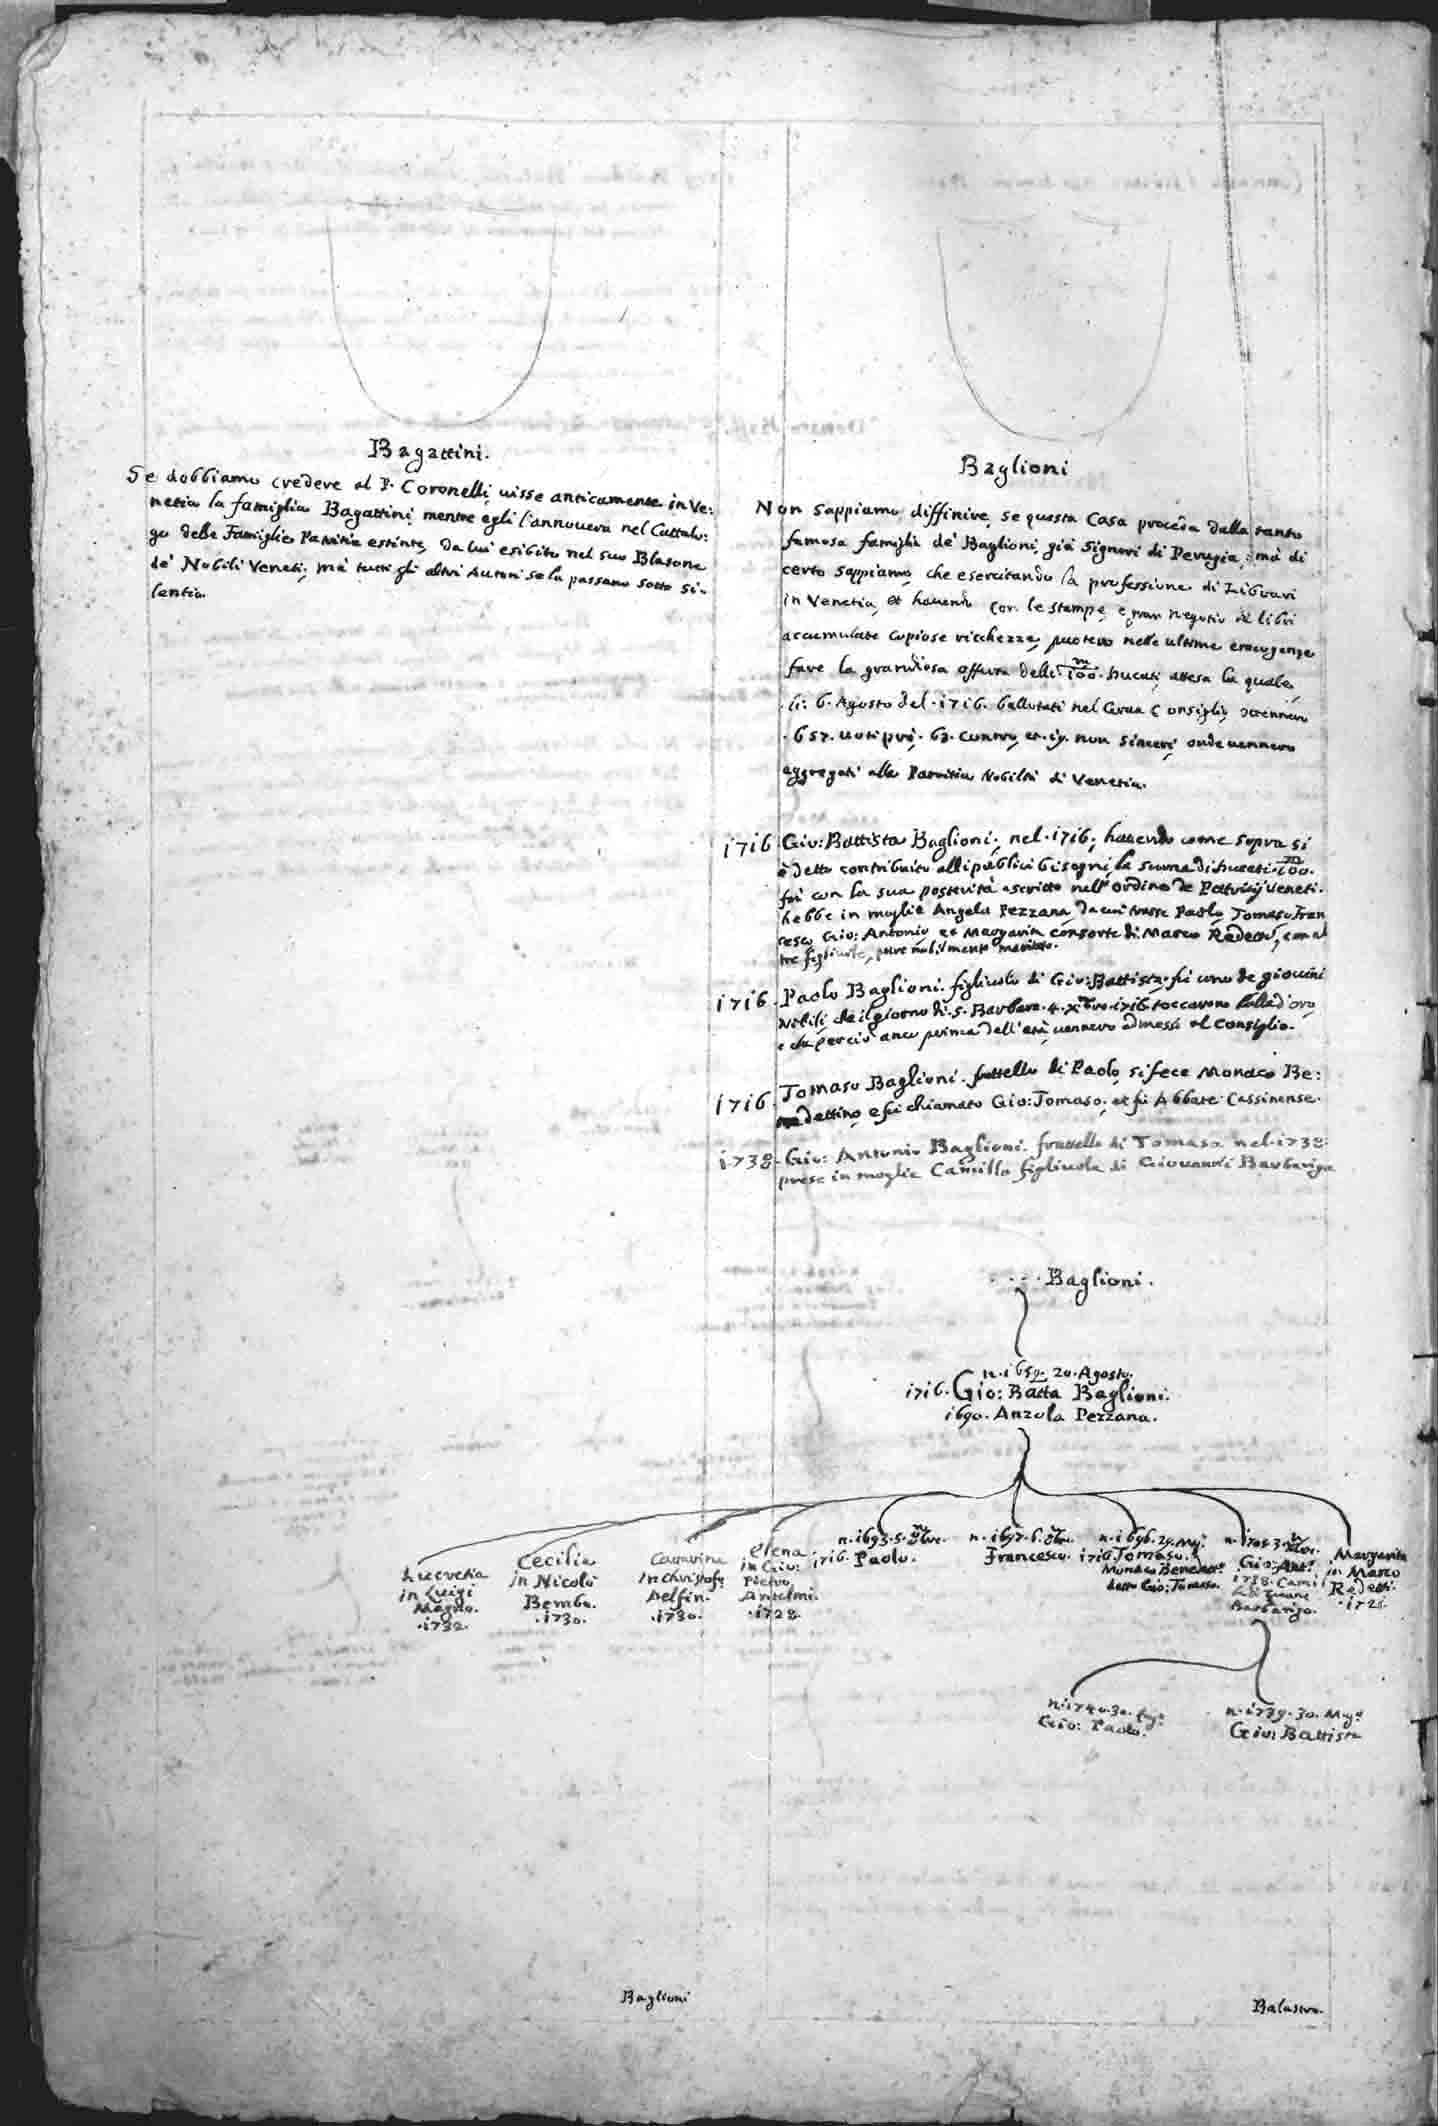 Bagattini.
Se dobbiamo credere al P. Coronelli, uisse anticamente in Ve:
netia la famiglia Bagattini, mentre egli l'annouera nel Cattalo:
go delle Famiglie Patritie estinte, da lui esibito nel suo Blasone
de' Nobili Veneti; mà tutti gli altri Autori se la passano sotto si-
lentio.
Baglioni
Non sappiamo diffinire, se questa Casa proceda dalla tanto
famosa famiglia de' Baglioni, già Signori di Perugia; mà di
certo sappiamo, che esercitando la professione di Librari
in Venetia, et hauendo con le stampe, e gran negotio di libri
accumulate copiose ricchezze, puotero nelle ultime emergenze
fare la grandiosa offerta delli m/100. Ducati, attesa la quale,
li. 6. Agosto del. 1716. ballotati nel Consiglio, ottennero
.657. uoti prò. 63. contro, et. non sinceri, onde uennero
aggregati alla Patritia Nobiltà di Venetia.
1716 Gio: Battista Baglioni, nel. 1716; hauendo come sopra si
è detto contribuito alli publici bisogni la summa di Ducati. m/100.
fù con la sua posterità ascritto nell'ordine de Patritij Veneti.
hebbe in moglie Angela Pezzana, da cui trasse Paolo, Tomaso, Fran
cesco, Gio: Antonio, et Margarita consorte di Marco Redetti, con al
tre figliuole, pure nobilmente maritate.
1716. Paolo Baglioni. figliuolo di Gio: Battista. fù uno de giouini
Nobili, che il giorno di. S. Barbara. 4. Xbre. 1716. toccarono balla d'oro,
e che perciò anco prima dell'età uennero admessi al Consiglio.
1716. Tomaso Baglioni. fratello di Paolo, si fece Monaco Be:
nedettino, e fù chiamato Gio: Tomaso. et fù Abbate Cassinense.
1738. Gio: Antonio Baglioni. fratello di Tomaso nel. 1738.
prese in moglie Camilla figliuola di Giouanni Barbarigo
. . . . Baglioni.
n. 1659. 20. Agosto.
1716. Gio: Batta Baglioni.
1690. Anzola Pezzana.
Lucretia
in Luigi
Magno.
.1732.
Cecilia
in Nicolò
Bembo.
.1730.
Cattarina
in Christofo
Delfin.
.1730.
Elena
in Gio:
Pietro
Anselmi.
.1728.
n. 1693. 5.
1716. Paolo.
n. 1697. 6.
Francesco.
n. 1696. 29. Mag.
1716 Tomaso.
Monaco Benedet.
detto Gio: Tomaso.
n. 1703. 3.
Gio: Ant.
1738. Cami
la di Zuane
Barbarigo.
Margarita
in Marco
Redetti.
.1721.
n. 1740. 30.
Gio: Paolo.
n. 1739. 30. Mag.
Gio: Battista
Baglioni
Balastro.